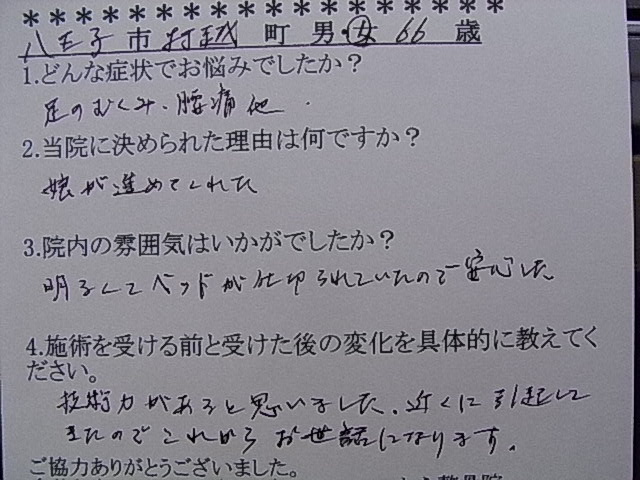 ＊＊＊＊＊＊＊＊＊＊＊＊＊＊＊＊＊＊
八王子 市 打越 町 男・女 66 歳
1.どんな症状でお悩みでしたか？
足のむくみ、腰痛他.
2.当院に決められた理由は何ですか？
娘が進めてくれた
3.院内の雰囲気はいかがでしたか？
明るくてベッドが仕切られていたので安心した
4.施術を受ける前と受けた後の変化を具体的に教えてく
ださい。
技術力があると思いました、近くに引越して
きたのでこれからお世話になります。
ご協力ありがとうございました。
整骨院